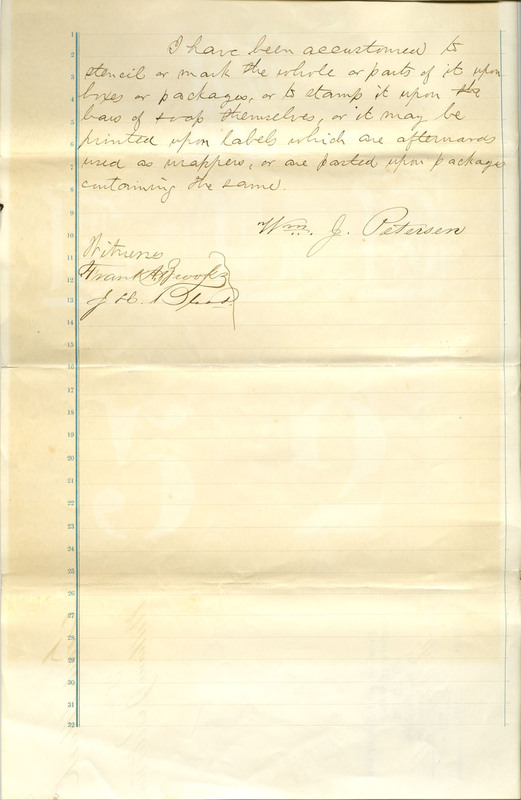 1
2
3
4
5
6
7
8
9
10
11
12
13
14
15
16
17
18
19
20
21
22
23
24
25
26
27
28
29
30
31
22
I have been accustomed to
stencil or mark the whole or parts of it upon
boxes or packages, or to stamp it upon the
bars of soap themselves, or it may be
printed upon labels which are afterwards
used as wrappers, or are pasted upon packages
containing the same.
Wm. J. Petersen
Witness
Frank A. Brooks
J. H.